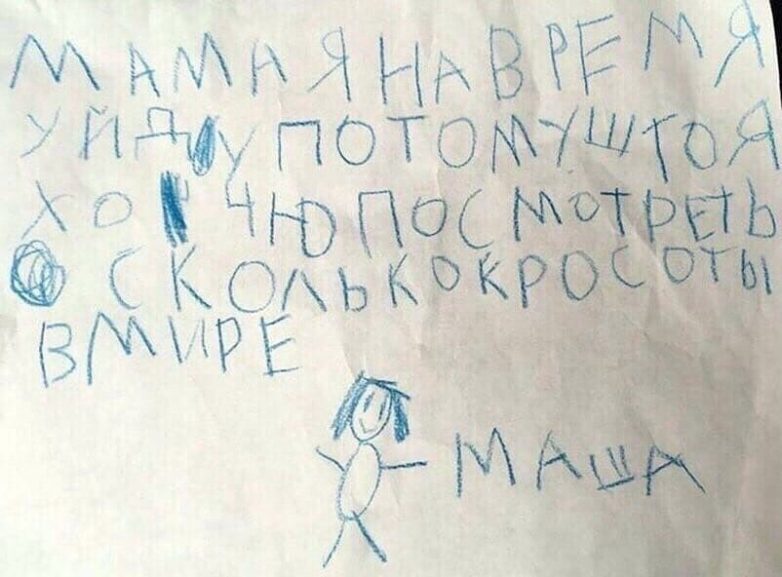 МАМА Я НА ВРЕМЯ
УЙДУ ПОТОМУШТО Я
ХОЧЮ ПОСМОТРЕТЬ
СКОЛЬКО КРОСОТЫ
В МИРЕ
МАША